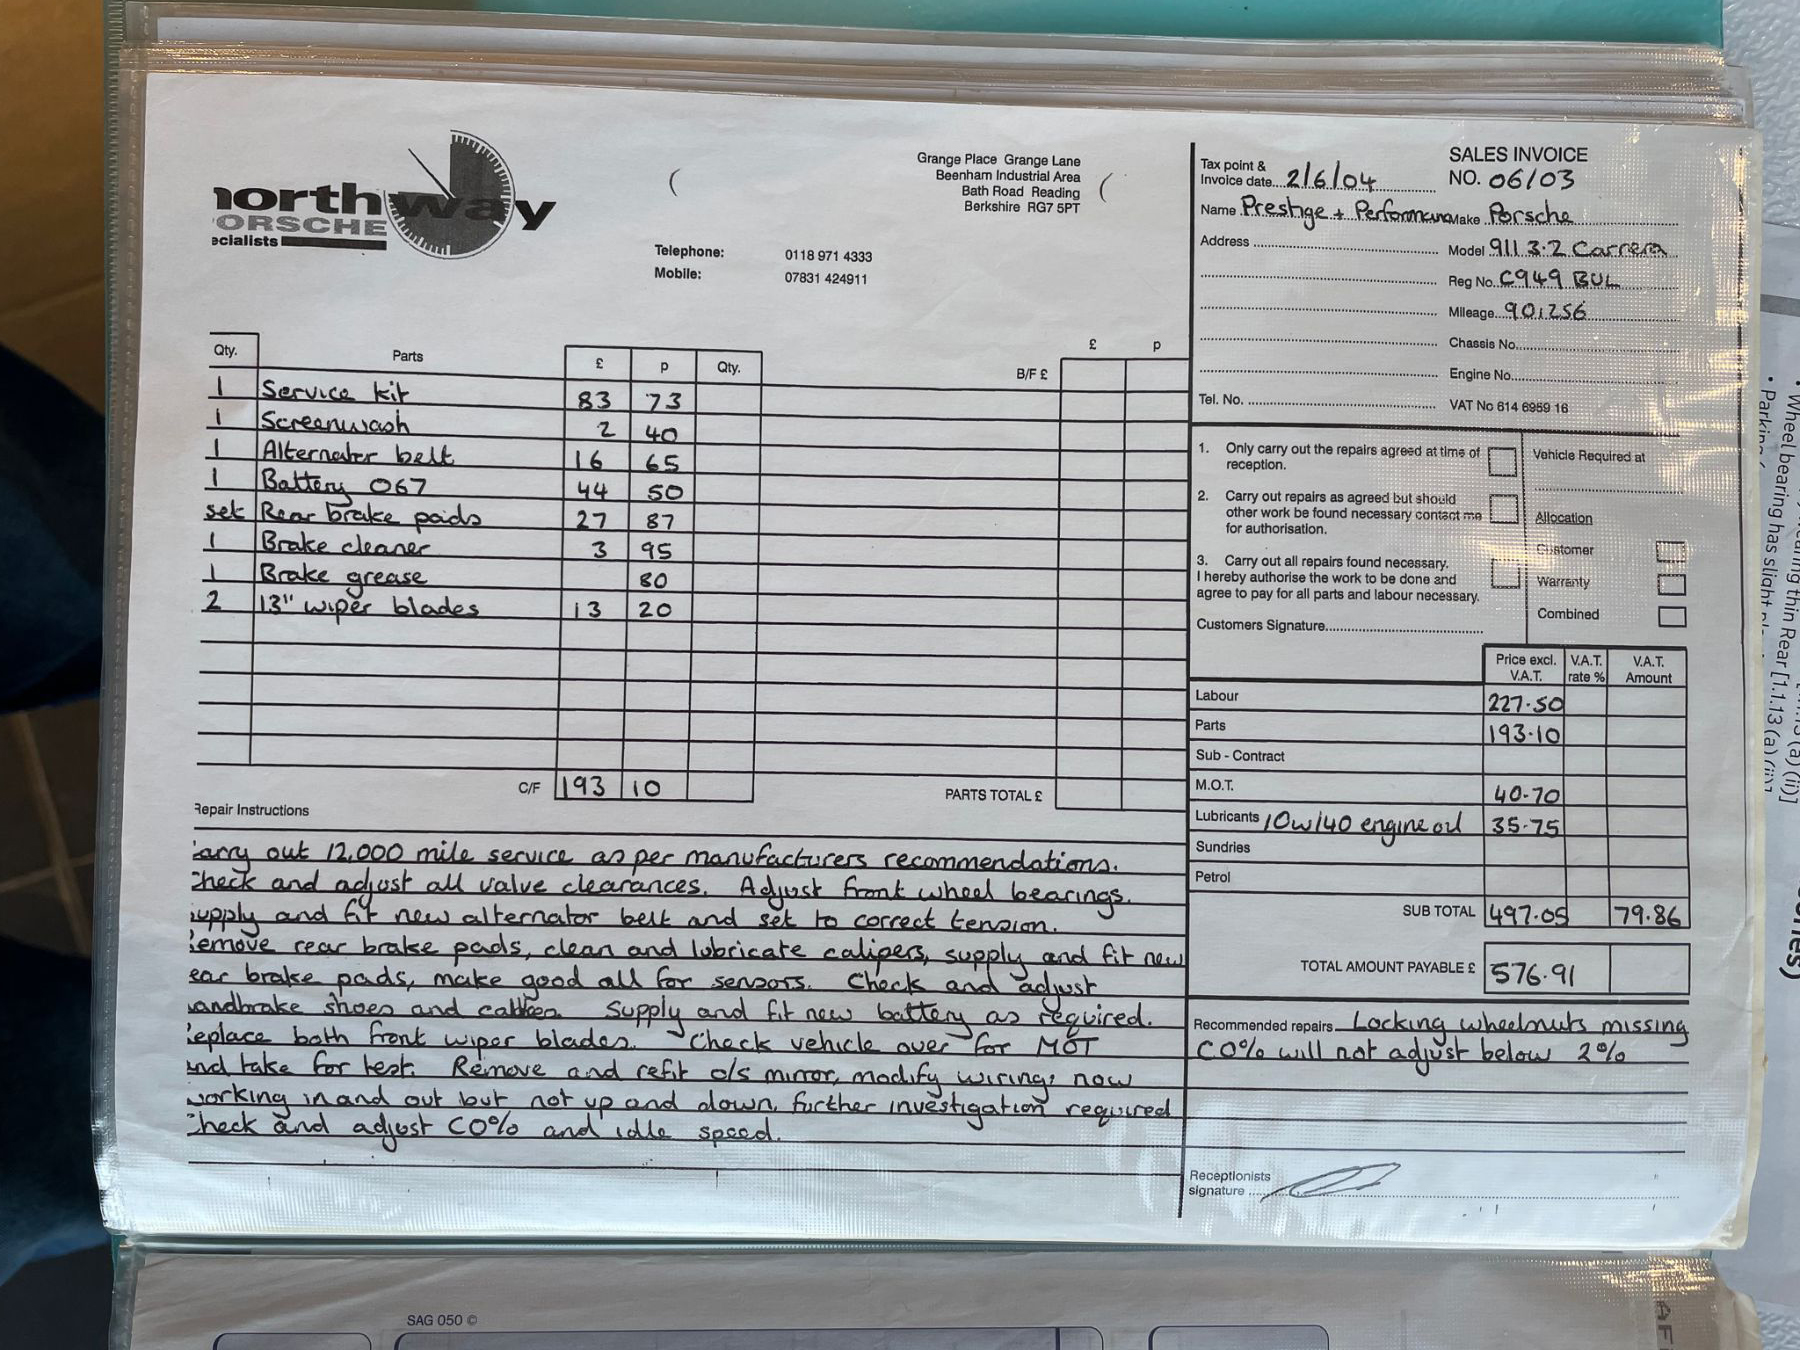 northway
ORSCHE
ecialists
Grange Place Grange Lane
Beenham Industrial Area
Bath Road Reading
Berkshire RG7 5PT
Telephone: 0118 971 4333
Mobile: 07831 424911
SALES INVOICE
NO. 06/03
Tax point &
Invoice date 2/6/04
Name Prestige + Performance Make Porsche
Address Model 911 3.2 Carrera
Reg No. C949 BUL
Mileage 90,256
Chassis No.
Engine No.
Tel. No. VAT No 614 6959 16
Qty. Parts £ p Qty. B/F £ £ p
1 Service kit 83 73
1 Screenwash 2 40
1 Alternator belt 16 65
1 Battery 067 44 50
set Rear brake pads 27 87
1 Brake cleaner 3 95
1 Brake grease 80
2 13" wiper blades 13 20
C/F 193 10 PARTS TOTAL £
1. Only carry out the repairs agreed at time of
reception.
2. Carry out repairs as agreed but should
other work be found necessary contact me
for authorisation.
3. Carry out all repairs found necessary.
I hereby authorise the work to be done and
agree to pay for all parts and labour necessary.
Customers Signature
Vehicle Required at
Allocation
Customer
Warranty
Combined
Price excl. V.A.T. V.A.T. rate % V.A.T. Amount
Labour 227.50
Parts 193.10
Sub - Contract
M.O.T. 40.70
Lubricants 10w/40 engine oil 35.75
Sundries
Petrol
SUB TOTAL 497.05 79.86
TOTAL AMOUNT PAYABLE £ 576.91
Repair Instructions
Carry out 12,000 mile service as per manufacturers recommendations.
Check and adjust all valve clearances. Adjust front wheel bearings.
supply and fit new alternator belt and set to correct tension.
Remove rear brake pads, clean and lubricate calipers, supply and fit new
rear brake pads, make good all for sensors. Check and adjust
handbrake shoes and cables. Supply and fit new battery as required.
Replace both front wiper blades. Check vehicle over for MOT
and take for test. Remove and refit o/s mirror, modify wiring, now
working in and out but not up and down, further investigation required
Check and adjust CO% and idle speed.
Recommended repairs Locking wheelnuts missing
CO% will not adjust below 2%
Receptionists
signature
SAG 050 ©
Wheel bearing has slight
thin Rear [1.1.13 (a) (ii)]